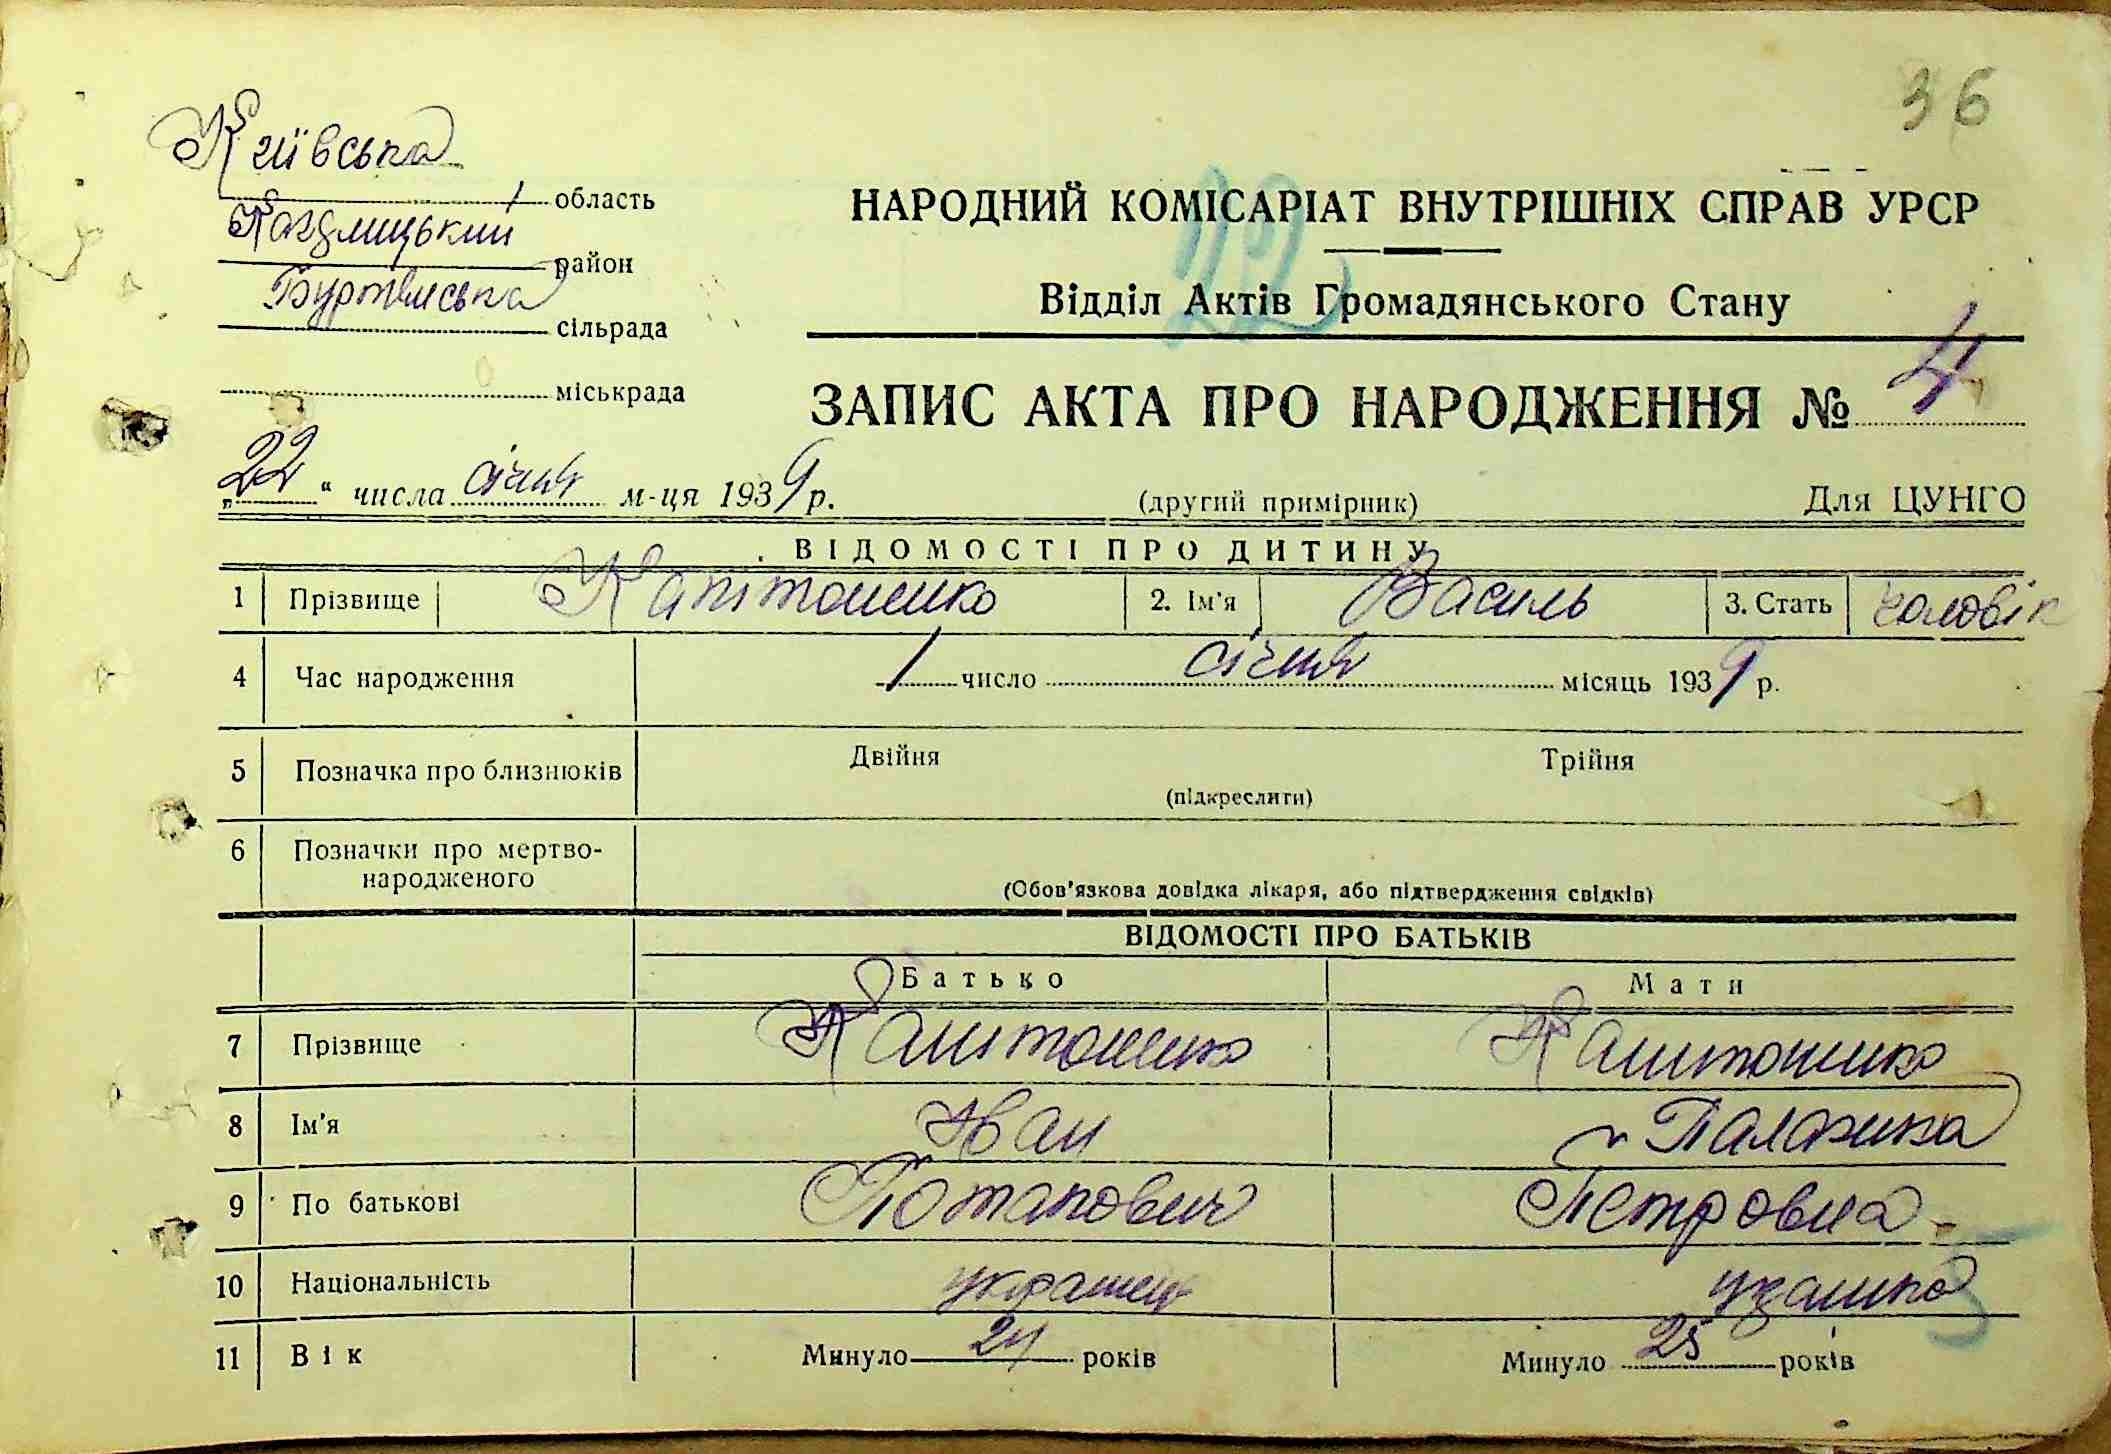 36
Київська
область
Кагарлицький
район
сільрада
міськрада
НАРОДНИЙ КОМІСАРІАТ ВНУТРІШНІХ СПРАВ УРСР
22
Відділ Актів Громадянського Стану
ЗАПИС АКТА ПРО НАРОДЖЕННЯ № 4
„22“ числа січня м-ця 1939 р. (другий примірник) Для ЦУНГО
ВІДОМОСТІ ПРО ДИТИНУ
1 Прізвище Капітоненко 2. Ім'я Василь 3. Стать чоловік
4 Час народження 1 число січня місяць 1939 р.
5 Позначка про близнюків Двійня Трійня
(підкреслити)
6 Позначки про мертво-
народженого
(Обов'язкова довідка лікаря, або підтвердження свідків)
ВІДОМОСТІ ПРО БАТЬКІВ
Батько Мати
7 Прізвище Капітоненко Капітоненко
8 Ім'я Іван Палажка
9 По батькові Потапович Петровна
10 Національність українец
11 Вік Минуло 24 років Минуло 25 років